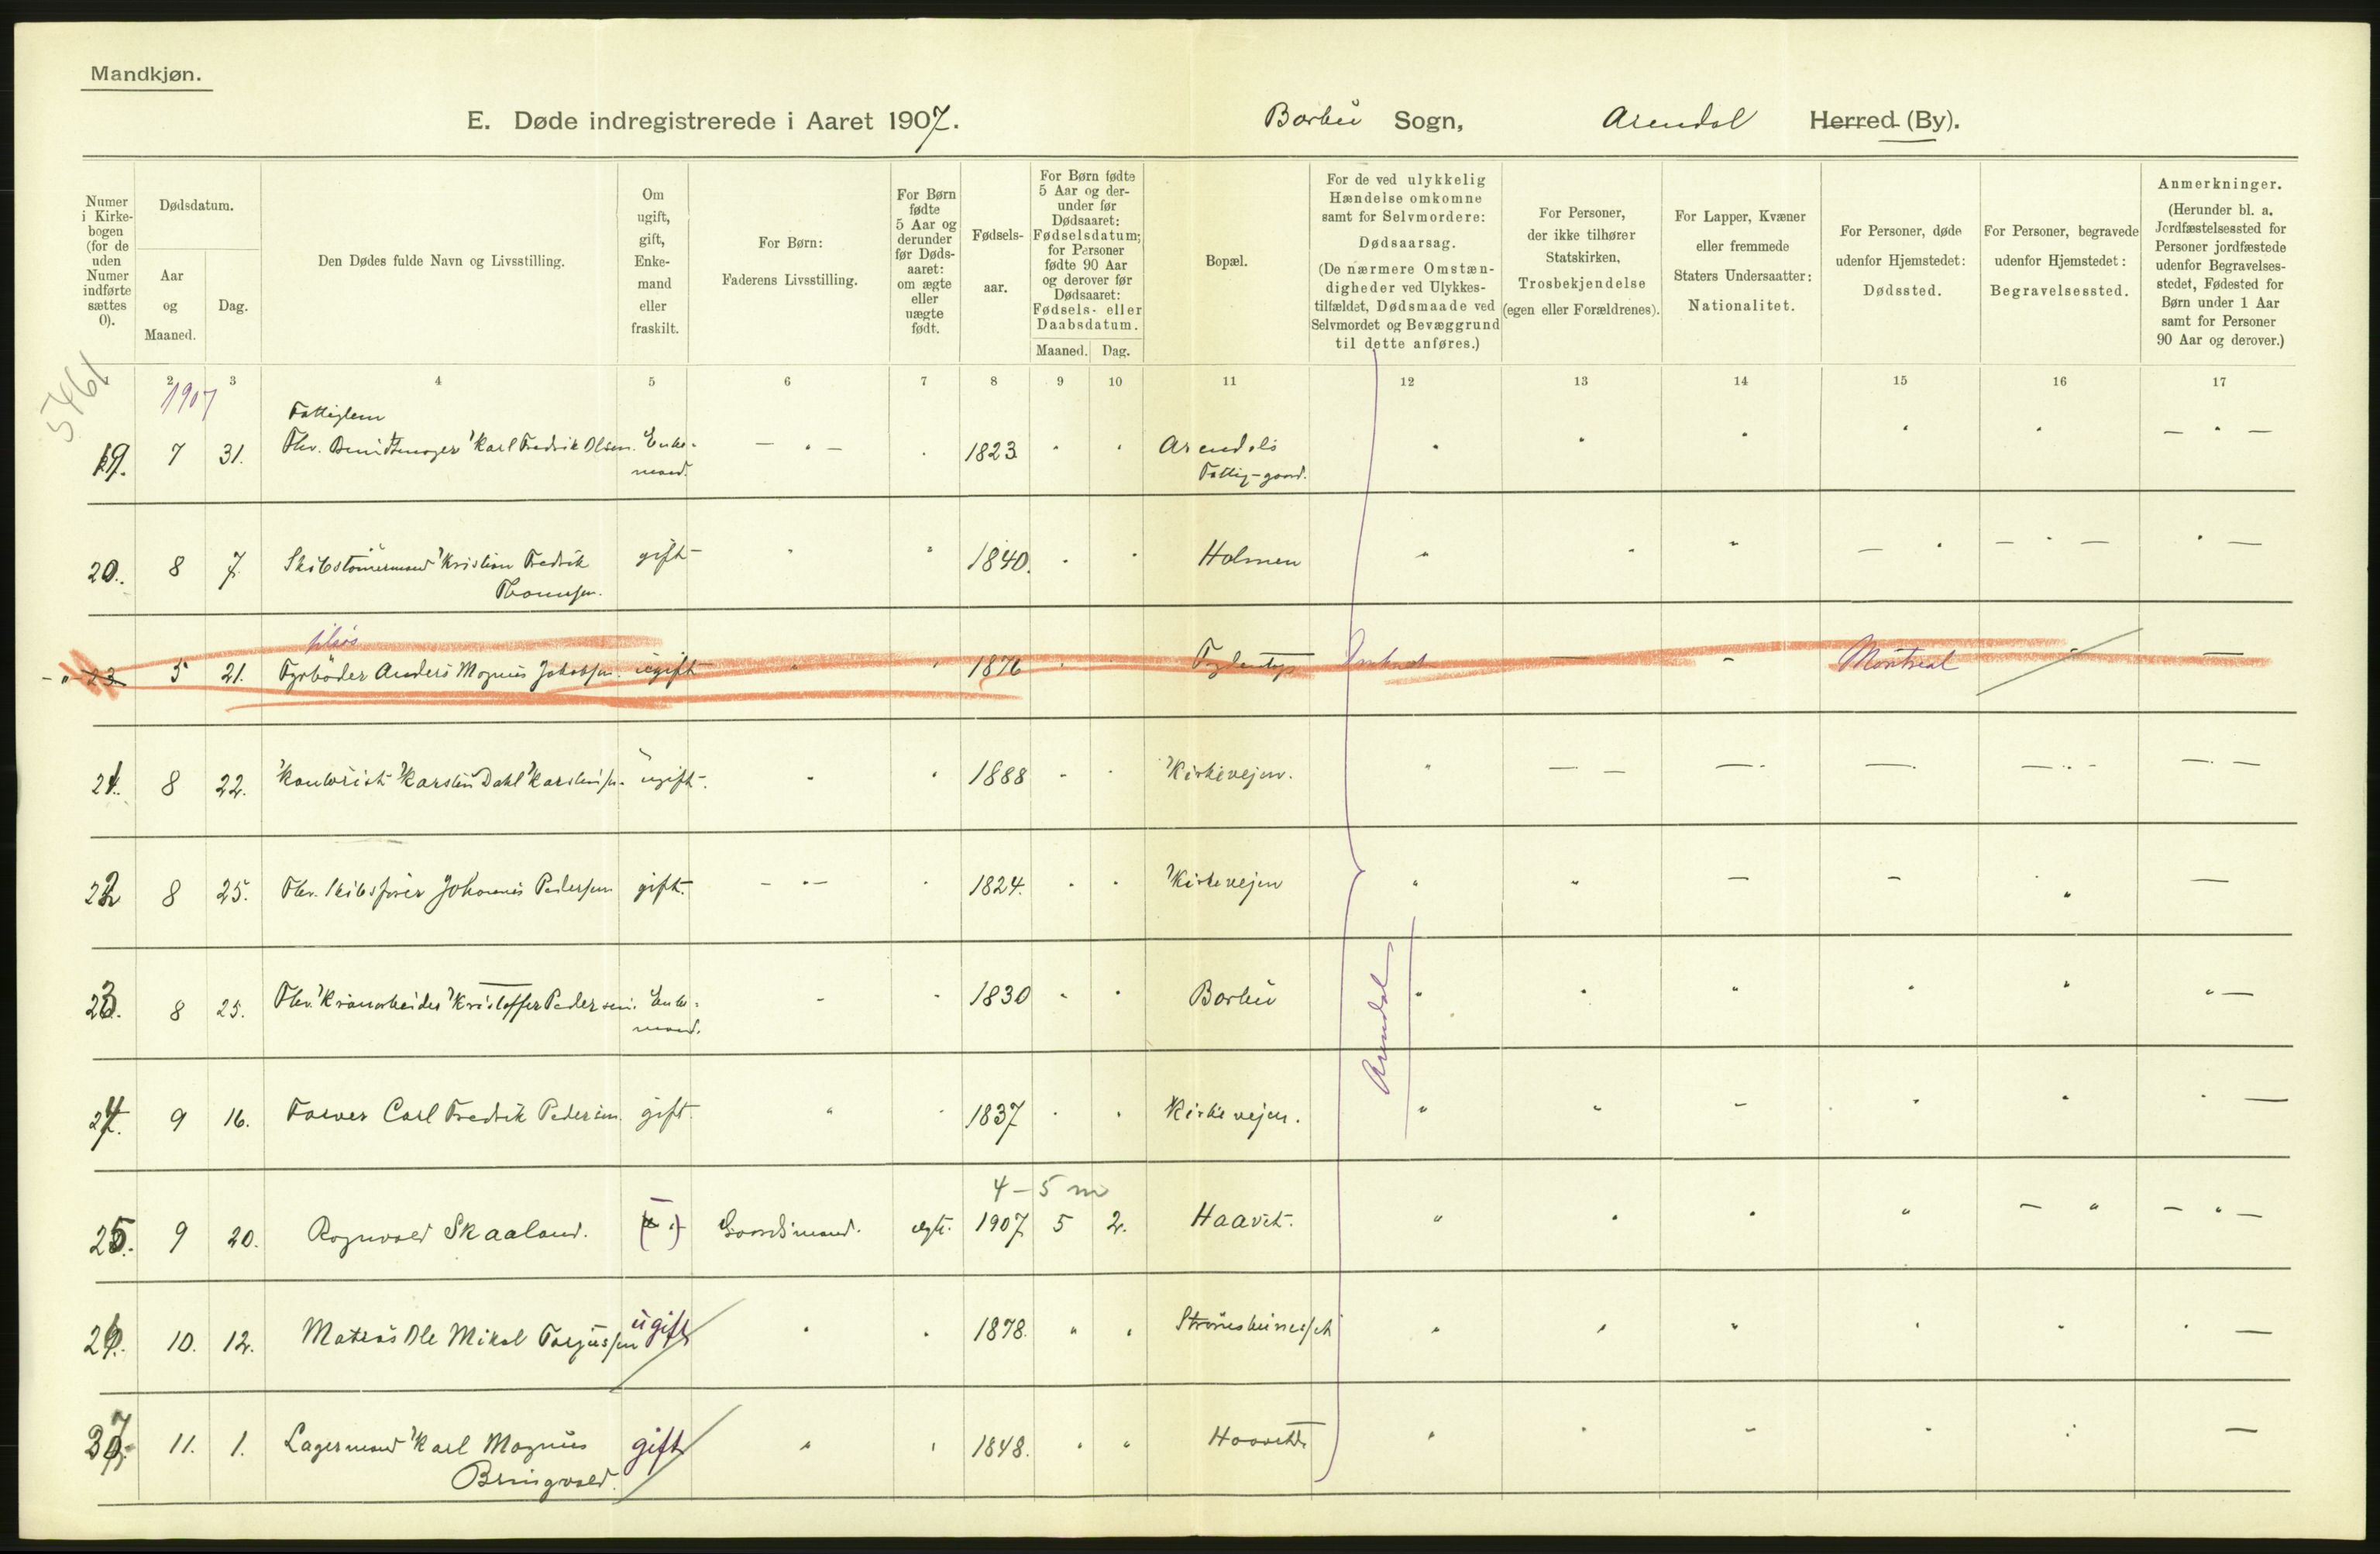 Mandkjøn.
E. Døde indregistrerede i Aaret 1907. Barbu Sogn, Arendal Herred (By).
Numer i Kirkebogen (for de uden Numer indførte sættes 0).
Dødsdatum.
Aar og Maaned.
Dag.
Den Dødes fulde Navn og Livsstilling.
Om ugift, gift, Enkemand eller fraskilt.
For Børn: Faderens Livsstilling.
For Børn fødte 5 Aar og derunder før Dødsaaret: om ægte eller uægte født.
Fødselsaar.
For Børn fødte 5 Aar og derunder før Dødsaaret: Fødselsdatum; for Personer fødte 90 Aar og derover før Dødsaaret: Fødsels- eller Daabsdatum.
Maaned. Dag.
Bopæl.
For de ved ulykkelig Hændelse omkomne samt for Selvmordere: Dødsaarsag. (De nærmere Omstændigheder ved Ulykkestilfældet, Dødsmaade ved Selvmordet og Bevæggrund til dette anføres.)
For Personer, der ikke tilhører Statskirken, Trosbekjendelse (egen eller Forældrenes).
For Lapper, Kvæner eller fremmede Staters Undersaatter: Nationalitet.
For Personer, døde udenfor Hjemstedet: Dødssted.
For Personer, begravede udenfor Hjemstedet: Begravelsessted.
Anmerkninger. (Herunder bl. a. Jordfæstelsessted for Personer jordfæstede udenfor Begravelsesstedet, Fødested for Børn under 1 Aar samt for Personer 90 Aar og derover.)
2 3 4 5 6 7 8 9 10 11 12 13 14 15 16 17
5461
1907
Fattiglem
19. 7 31. Fhv. Karl Fredrik Olsen. Enke- 1823 Arendals
mand. Fattig-gaard.
20. 8 7. Skibstømmermand Kristian Fredrik gift 1840. Holmen
Thomsen.
23 5 21. Fyrbøder Anders Magnus Jakobsen. ugift 1876 Montreal
21. 8 22. Kontorist Karsten Dahl Karstensen. ugift. 1888 Kirkeveien.
22 8 25. Fhv. Skibsfører Johannes Pedersen gift. 1824. Kirkeveien
23. 8 25. Fhv. Kristoffer Pedersen. Enke- 1830 Barbu
mand.
Arendal
24. 9 16. Farver Carl Fredrik Pedersen. gift. 1837 Kirkeveien.
4 – 5 m
25. 9 20. Ragnvald Skaaland. Gaardsmand. ægte. 1907 5 2. Haavet.
26. 10. 12. Matros Ole Mikal Tarjussen ugift 1878.
27. 11. 1. Lagermand Karl Magnus gift 1848. Haavet
Bringsvald.